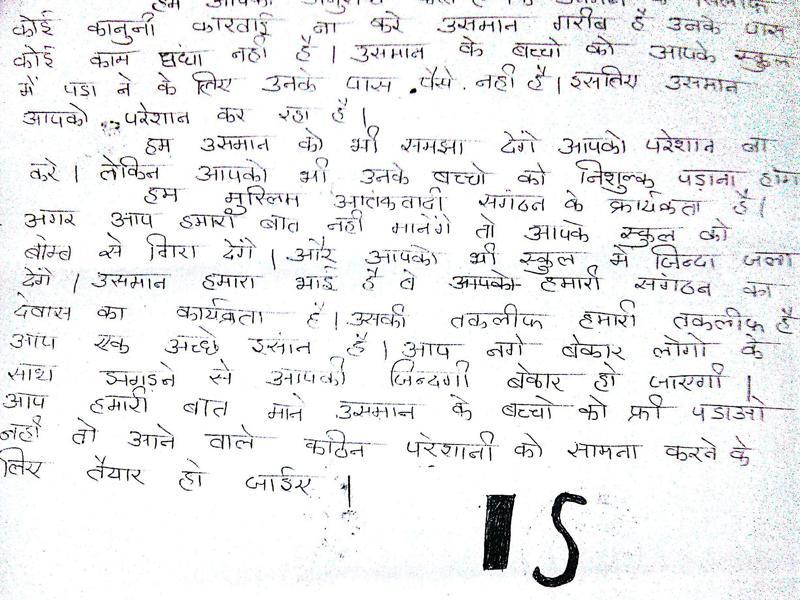 हम आपको
कोई कानुनी कारवाई ना करे उसमान गरीब है उनके पास
कोई काम धंधा नही है | उसमान के बच्चो को आपके स्कुल
में पडा ने के लिए उनके पास पैसे नही है | इसलिए उसमान
आपको परेशान कर रहा है |
हम उसमान को भी समझा देंगे आपको परेशान ना
करे | लेकिन आपको भी उनके बच्चो को निशुल्क पडाना होगा
हम मुस्लिम आतकवादी सगंठन के कार्यकता है |
अगर आप हमारी बात नही मानेंगे तो आपके स्कुल को
बोम्ब से गिरा देंगे | और आपको भी स्कुल में जिन्दा जला
देंगे | उसमान हमारा भाई है वे आपको हमारी सगंठन का
देवास का कार्यक्रता है | उसकी तकलीफ हमारी तकलीफ है
आप एक अच्छे इसांन है | आप नगे बेकार लोगो के
साथ झगड़ने से आपकी जिन्दगी बेकार हो जाएगी |
आप हमारी बात माने उसमान के बच्चो को फ्री पडाओ
नही तो आने वाले कठिन परेशानी को सामना करने के
लिए तैयार हो जाईए |
IS